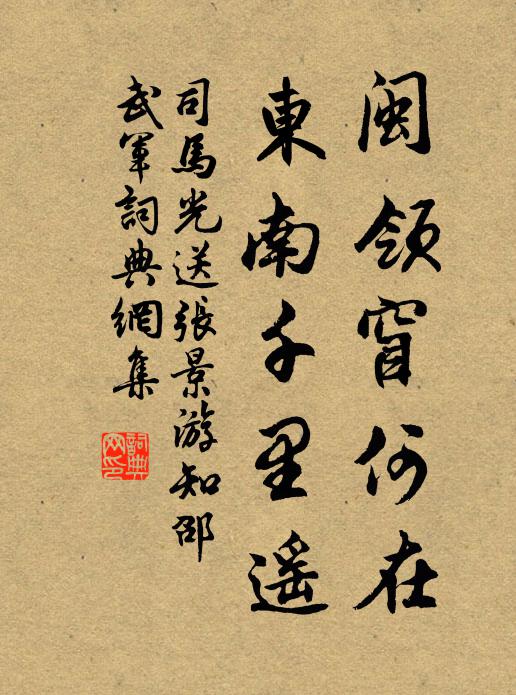 閩領窅何在
東南千里遥
司馬光送張景游知邵
武軍詞典網集
詞典网印